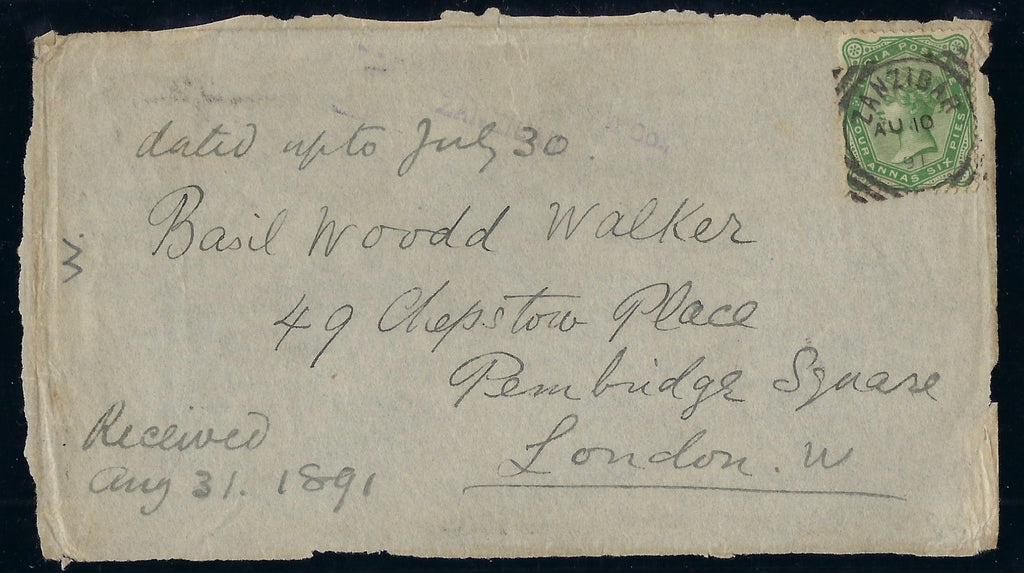 INDIA POSTAGE
FOUR ANNAS SIX PIES
ZANZIBAR
AU 10
91
dated up to July 30.
Basil Woodd Walker
49 Chepstow Place
Pembridge Square
London. W
Received
Aug 31. 1891